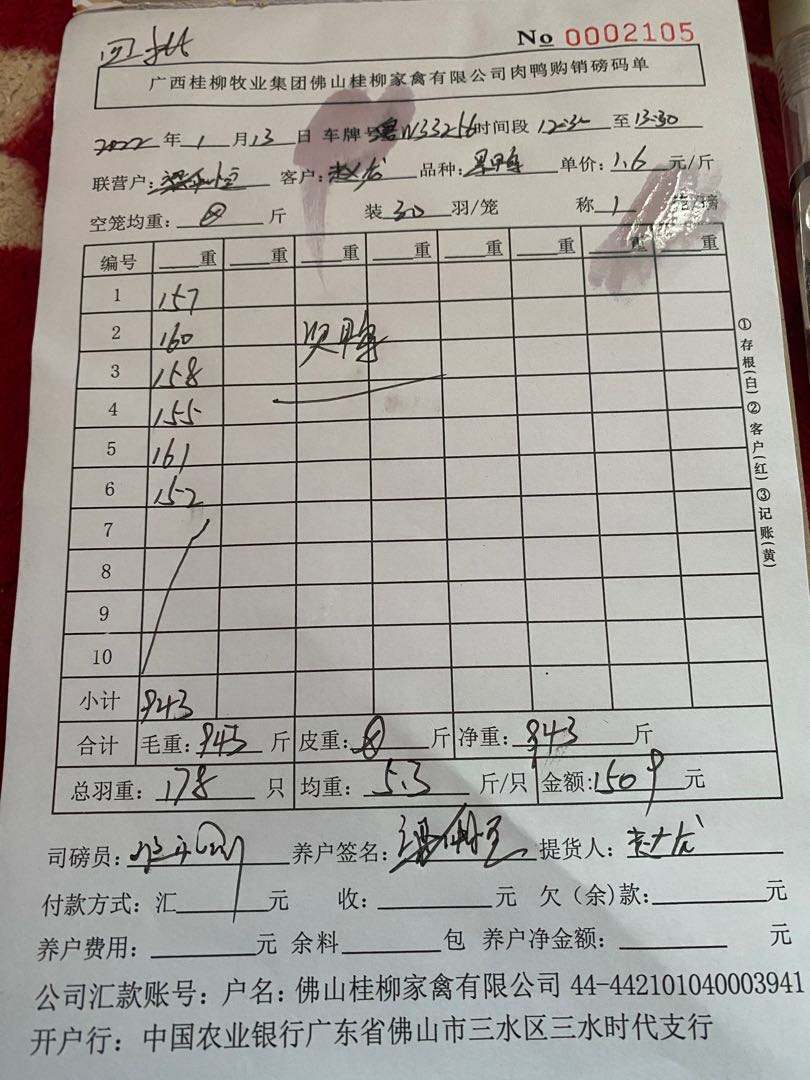 No 0002105
广西桂柳牧业集团佛山桂柳家禽有限公司肉鸭购销磅码单
2022 年 1 月 13 日 车牌号: W33256 时间段 12:30 至 13:30
联营户: 客户: 赵龙 品种: 单价: 1.6 元/斤
空笼均重: ⊗ 斤 装 30 羽/笼 称 1 笼/磅
编号 重 重 重 重 重 重 重 重
1 157
2 160
3 158
4 155
5 161
6 152
7
8
9
10
小计 943
合计 毛重: 943 斤 皮重: ⊗ 斤 净重: 943 斤
总羽重: 178 只 均重: 5.3 斤/只 金额: 1509 元
司磅员: 养户签名: 提货人: 赵龙
付款方式: 汇 元 收: 元 欠(余)款: 元
养户费用: 元 余料 包 养户净金额: 元
公司汇款账号: 户名: 佛山桂柳家禽有限公司 44-442101040003941
开户行: 中国农业银行广东省佛山市三水区三水时代支行
①存根(白)②客户(红)③记账(黄)